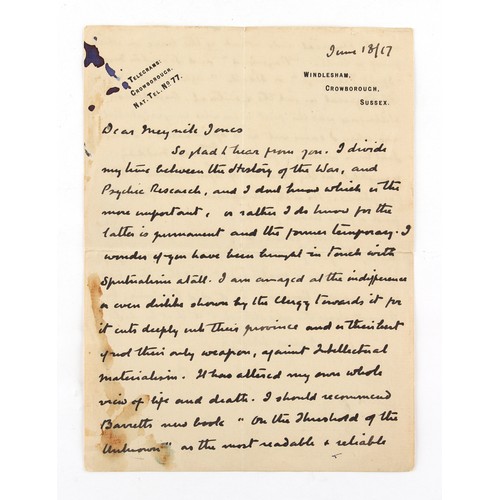 June 18/17
TELEGRAMS:
CROWBOROUGH.
NAT. TEL. No 77.
WINDLESHAM,
CROWBOROUGH,
SUSSEX.
Dear Meyrick Jones
So glad to hear from you. I divide
my time between the History of the War, and
Psychic Research, and I dont know which is the
more important, or rather I do know for the
latter is permanent and the former temporary. I
wonder if you have been brought in touch with
Spiritualism at all. I am amazed at the indifference
or even dislike shown by the Clergy towards it for
it cuts deeply into their province and is their best
if not their only weapon, against Intellectual
materialism. It has altered my own whole
view of life and death. I should recommend
Barretts new book "On the Threshold of the
Unknown" as the most readable & reliable